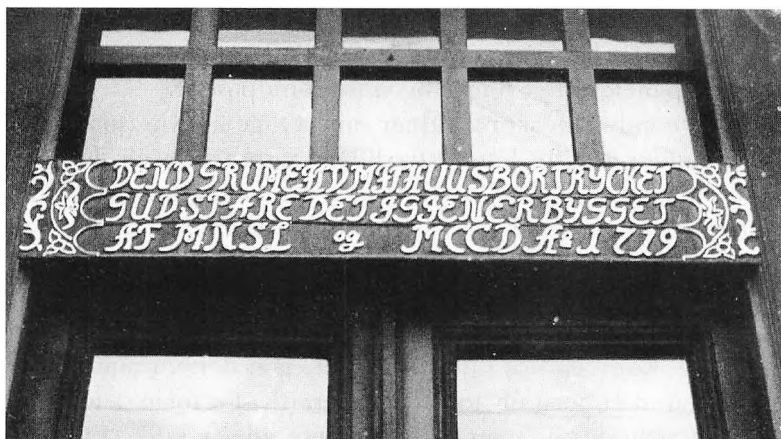 DEND GRUME ILD MIT HUUS BORTRYCKET
GUD SPARE DET IGIEN ER BYGGET
AF MNSL og MCCD Aº 1719